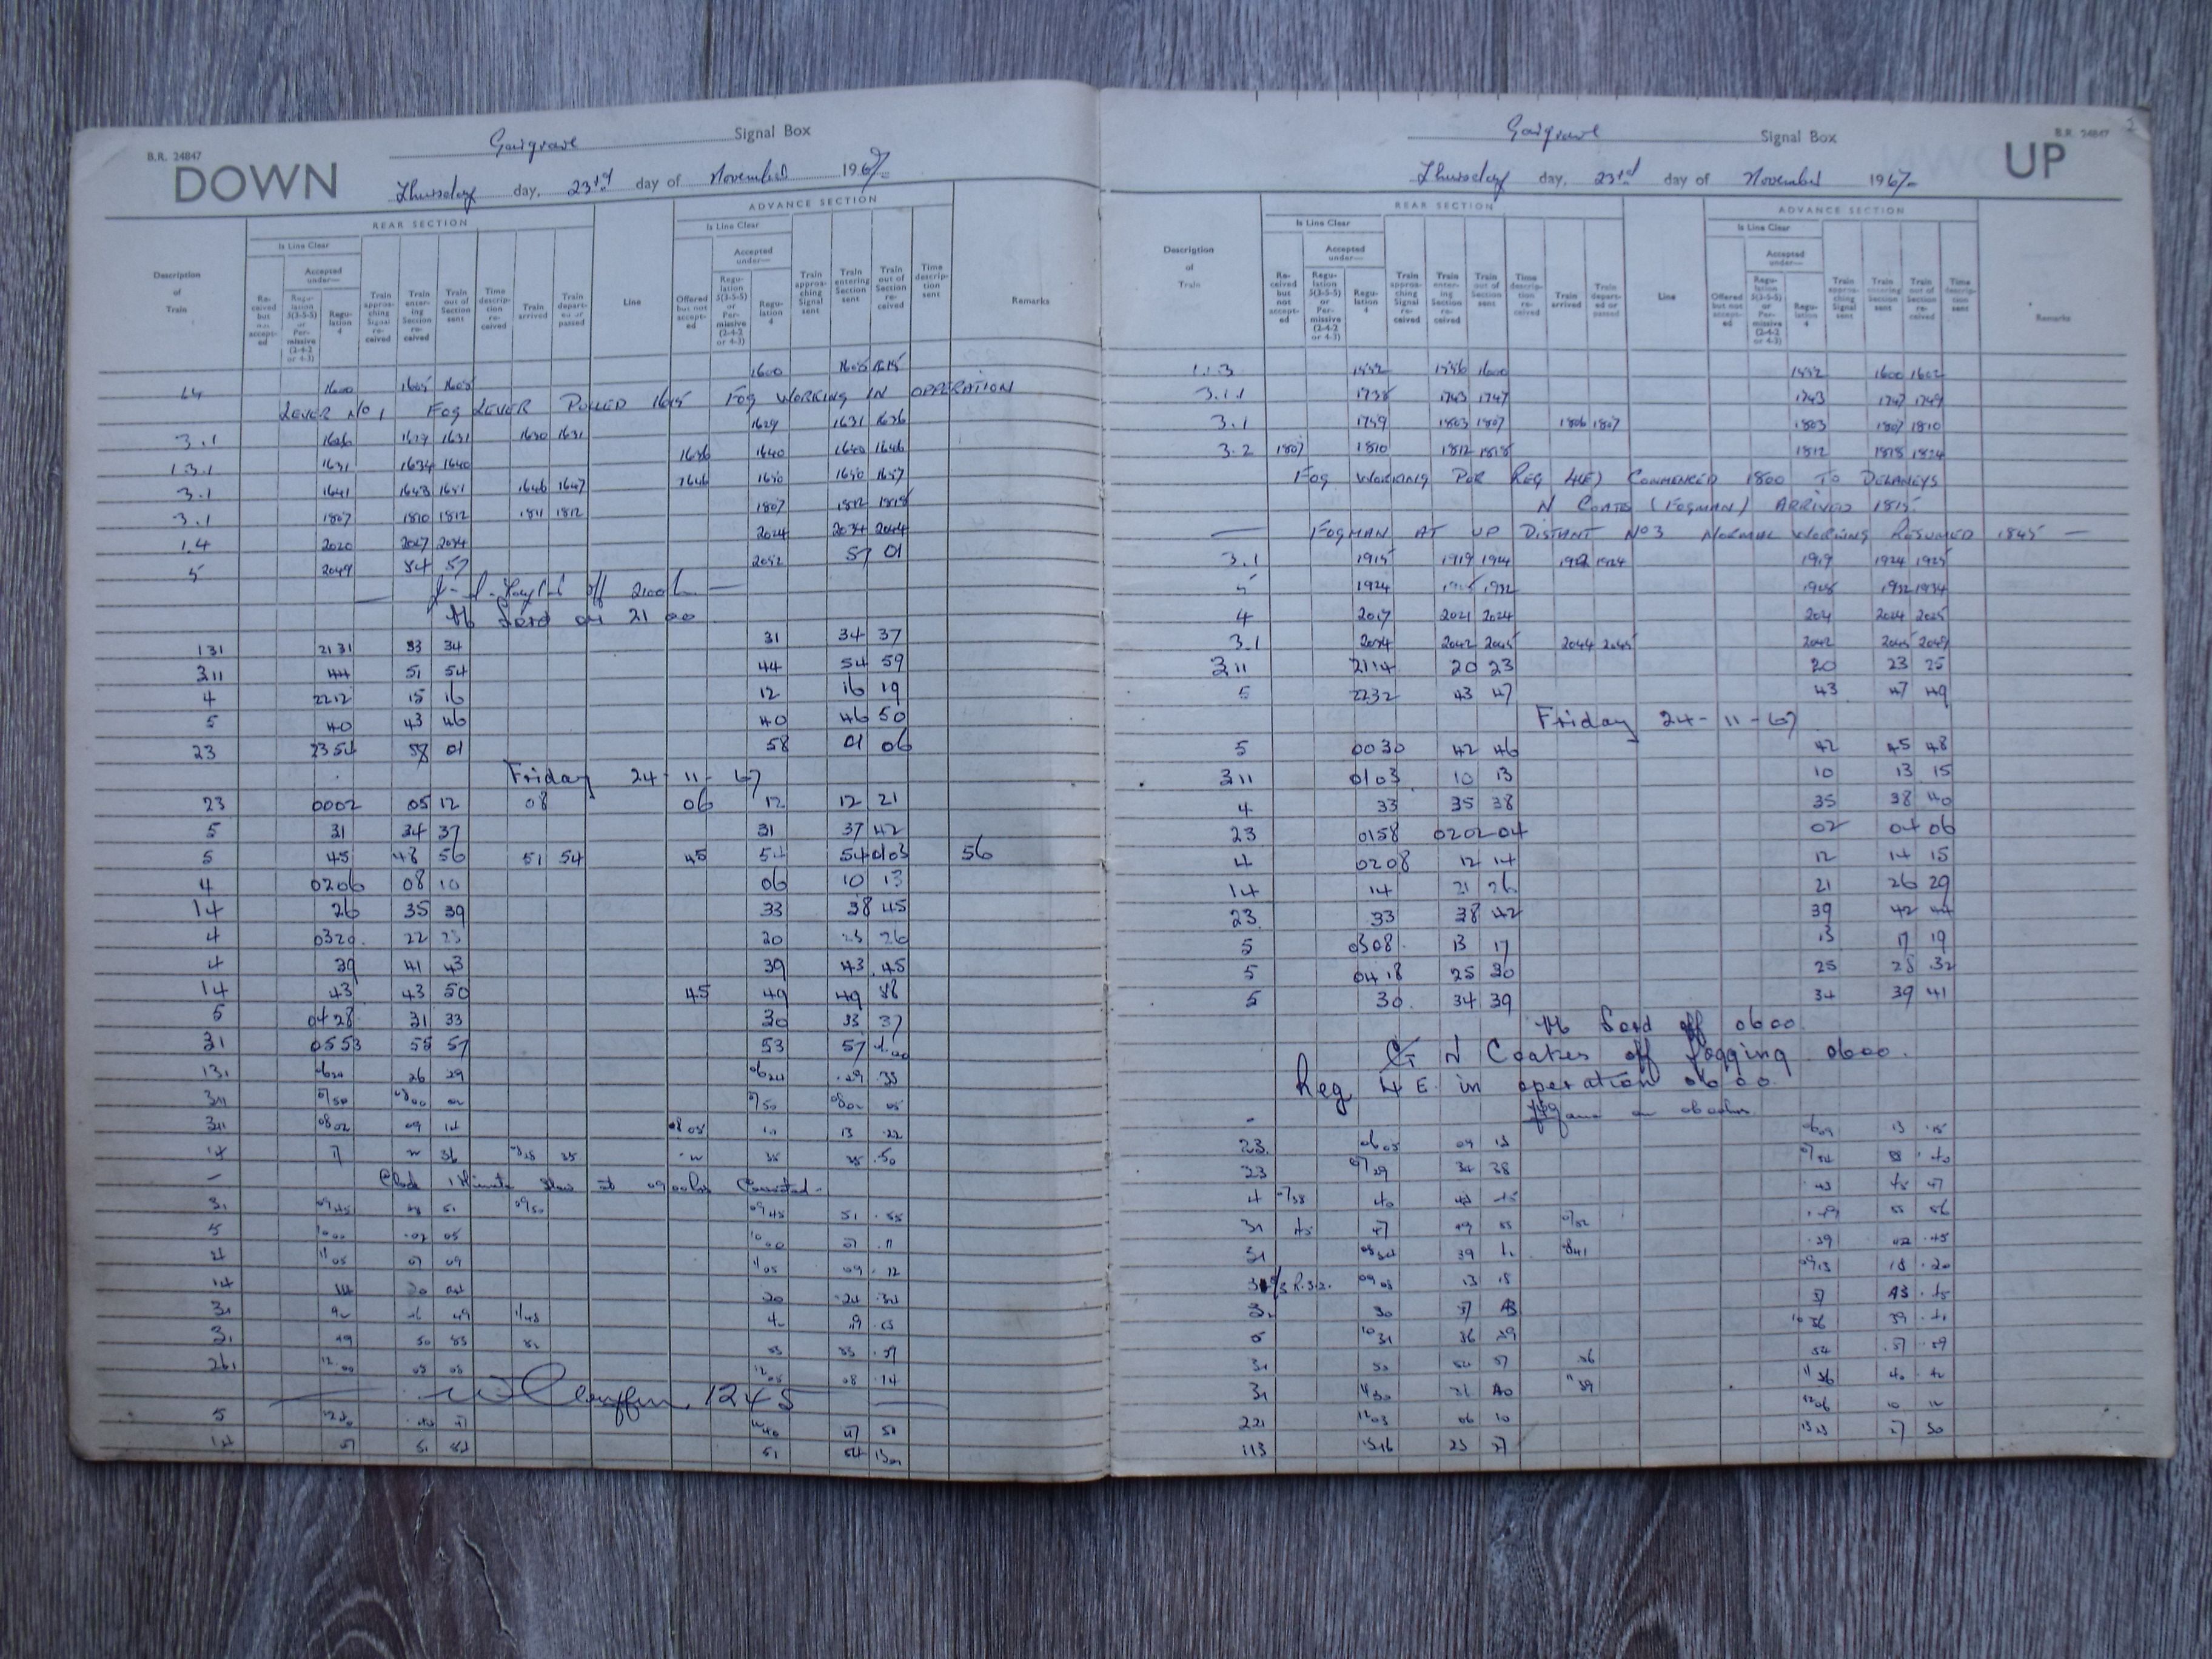 B.R. 24847
Gargrave Signal Box
DOWN
Thursday day, 23rd day of November 1967
REAR SECTION
ADVANCE SECTION
Description of Train
Is Line Clear
Received but not accepted
Accepted under—
Regulation 5(3-5-5) or Permissive (2-4-2 or 4-3)
Regulation 4
Train approaching Signal received
Train entering Section received
Train out of Section sent
Time description received
Train arrived
Train departed or passed
Line
Is Line Clear
Offered but not accepted
Accepted under—
Regulation 5(3-5-5) or Permissive (2-4-2 or 4-3)
Regulation 4
Train approaching Signal sent
Train entering Section sent
Train out of Section received
Time description sent
Remarks
1.4 1600 1605 1605 1600 1605 1615
LEVER NO 1 FOG LEVER PULLED 1615 FOG WORKING IN OPPERATION
3.1 1626 1629 1631 1630 1631 1629 1631 1636
1.3.1 1631 1634 1640 1636 1640 1640 1646
3.1 1641 1643 1651 1646 1647 1646 1650 1650 1657
3.1 1807 1810 1812 1811 1812 1807 1812 1818
1.4 2020 2027 2034 2024 2034 2044
5 2049 54 57 2052 57 01
off 2100
on 21 00
131 2131 33 34 31 34 37
311 44 51 54 44 54 59
4 2212 15 16 12 16 19
5 40 43 46 40 46 50
23 2354 58 01 58 01 06
Friday 24-11-67
23 0002 05 12 08 06 12 12 21
5 31 34 37 31 37 42
5 45 48 56 51 54 45 54 54 0103 56
4 0206 08 10 06 10 13
14 26 35 39 33 38 45
4 0320 22 23 20 23 26
4 39 41 43 39 43 45
14 43 43 50 45 49 49
5 0428 31 33 30 33 37
31 0553 55 57 53 57
131 0624 26 29 0624 29 33
311 0750 0800 02 0750 0802 05
311 0802 09 14 0805 10 13 22
14 36 0828 35 35 35 50
Clock 1 Minute Slow at 0900hrs Corrected
31 0945 48 51 0950 0945 51 55
5 1000 02 05 1000 07 11
4 1105 07 09 1105 09 12
14 14 20 24 20 24 34
31 49 1148 49
31 49 50 53 52 53 53 57
261 1200 05 08 1205 08 14
1245
5 1240 47 1240 47 51
14 51 54 51 54
B.R. 24847
Gargrave Signal Box
UP
Thursday day, 23rd day of November 1967
REAR SECTION
ADVANCE SECTION
Description of Train
Is Line Clear
Received but not accepted
Accepted under—
Regulation 5(3-5-5) or Permissive (2-4-2 or 4-3)
Regulation 4
Train approaching Signal received
Train entering Section received
Train out of Section sent
Time description received
Train arrived
Train departed or passed
Line
Is Line Clear
Offered but not accepted
Accepted under—
Regulation 5(3-5-5) or Permissive (2-4-2 or 4-3)
Regulation 4
Train approaching Signal sent
Train entering Section sent
Train out of Section received
Time description sent
Remarks
1.1.3 1552 1556 1600 1552 1600 1602
3.1.1 1738 1743 1747 1743 1747 1749
3.1 1759 1803 1807 1806 1807 1803 1807 1810
3.2 1807 1810 1812 1818 1812 1818 1824
FOG WORKING PER REG 4(E) COMMENCED 1800 TO DELANEYS
N COATES (FOGMAN) ARRIVED 1815.
FOGMAN AT UP DISTANT NO3 NORMAL WORKING RESUMED 1845
3.1 1915 1919 1924 1922 1924 1919 1924 1925
5 1924 1932 1928 1932 1934
4 2017 2021 2024 2021 2024 2025
3.1 2034 2042 2045 2044 2045 2042 2045 2049
311 2114 20 23 20 23 25
5 2232 43 47 43 47 49
Friday 24-11-67
5 0030 42 46 42 45 48
311 0103 10 13 10 13 15
4 33 35 38 35 38 40
23 0158 0202 04 02 04 06
4 0208 12 14 12 14 15
14 14 21 26 21 26 29
23 33 38 42 39 42 44
5 0308 13 17 13 17 19
5 0418 25 30 25 28 32
5 30 34 39 34 39 41
off 0600
N Coates off fogging 0600.
Reg 4E in operation 0600
on 0600hrs
23 0605 09 13 0609 13 15
23 0729 34 38 0734 38 40
4 0738 40 43 45 43 45 47
31 45 47 49 55 0752 49 55 56
31 0834 39 42 0841 39 42 45
0908 13 18 0913 18 20
30 37 43 37 43 45
5 1031 36 39 1036 39 41
31 50 54 57 56 54 57 59
31 1130 40 1139 1136 40 42
221 1203 06 10 1206 10 12
113 1316 23 27 1323 27 30